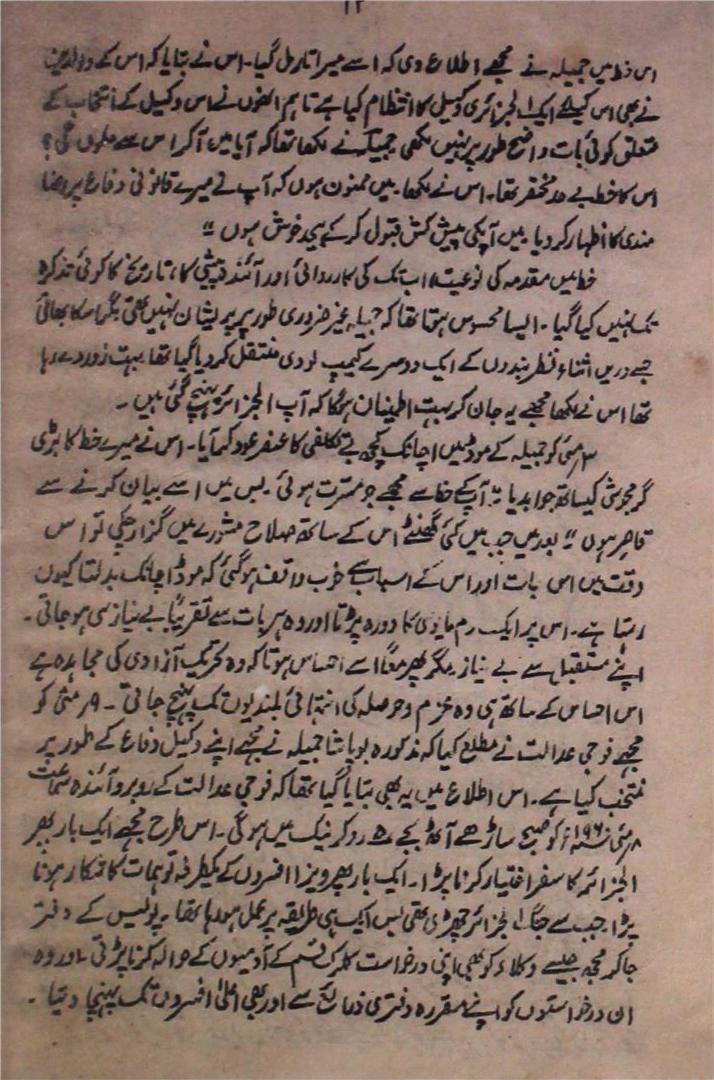 ۱۲
اس خط میں جمیلہ نے مجھے اطلاع دی کہ اسے میرا تار مل گیا۔ اس نے بتایا کہ اس کے والدین
نے بھی اس کیلئے ایک الجزائری وکیل کا انتظام کیا ہے تاہم انھوں نے اس وکیل کے انتخاب کے
متعلق کوئی بات واضح طور پر نہیں لکھی جمیلہ نے لکھا تھا کہ آیا میں آکر اس سے ملوں گی؟
اس کا خط بے حد مختصر تھا۔ اس نے لکھا۔ میں ممنون ہوں کہ آپ نے میرے قانونی دفاع پر رضا
مندی کا اظہار کر دیا۔ میں آپکی پیش کش قبول کر کے بیحد خوش ہوں ‘‘
خط میں مقدمہ کی نوعیت، اب تک کی کارروائی اور آئندہ پیشی کا، تاریخ کا کوئی تذکرہ
تک نہیں کیا گیا۔ ایسا محسوس ہوتا تھا کہ جمیلہ غیر ضروری طور پر پریشان نہیں تھی مگر اسکا بھائی
جسے دریں اثناء نظر بندوں کے ایک دوسرے کیمپ لودی منتقل کر دیا گیا تھا بہت زور دے رہا
تھا اس نے لکھا مجھے یہ جان کر بہت اطمینان ہوگا کہ آپ الجزائر پہنچ گئی ہیں ۔
۳ مئی کو جمیلہ کے موڈ میں اچانک کچھ بے تکلفی کا عنصر عود کر آیا۔ اس نے میرے خط کا بڑی
گرمجوشی کیساتھ جواب دیا ’’ آپ کے خط سے مجھے جو مسرت ہوئی۔ بس میں اسے بیان کرنے سے
قاصر ہوں ‘‘ بعد میں جب میں کئی گھنٹے اس کے ساتھ صلاح مشورے میں گزار چکی تو اس
وقت میں اس بات اور اس کے اسباب سے خوب واقف ہوگئی کہ موڈ اچانک بدلتا کیوں
رہتا ہے۔ اس پر ایک دم مایوسی کا دورہ پڑتا اور وہ ہر بات سے تقریباً بے نیاز سی ہو جاتی۔
اپنے مستقبل سے بے نیاز۔ مگر پھر معاً اسے احساس ہوتا کہ وہ تحریک آزادی کی مجاہدہ ہے
اس احساس کے ساتھ ہی وہ عزم و حوصلہ کی انتہائی بلندیوں تک پہنچ جاتی ۔ ۹ مئی کو
مجھے فوجی عدالت نے مطلع کیا کہ مذکورہ بوپاشا جمیلہ نے مجھے اپنے وکیل دفاع کے طور پر
منتخب کیا ہے۔ اس اطلاع میں یہ بھی بتایا گیا تھا کہ فوجی عدالت کے روبرو آئندہ سماعت
مئی ۱۹۶۰ء کو صبح ساڑھے آٹھ بجے میں ہوگی۔ اس طرح مجھے ایک بار پھر
الجزائر کا سفر اختیار کرنا پڑا۔ ایک بار پھر ویزا افسروں کے یکطرفہ توہمات کا شکار ہونا
پڑا جب سے جنگ الجزائر چھڑی تھی بس ایک ہی طریقہ پر عمل ہو رہا تھا۔ پولیس کے دفتر
جا کر مجھ جیسے وکلاء کو بھی اپنی درخواست کلرک قسم کے آدمیوں کے حوالہ کرنا پڑتی اور وہ
ان درخواستوں کو اپنے مقررہ دفتری ذرائع سے اور بھی اعلیٰ افسروں تک پہنچا دیتا ۔